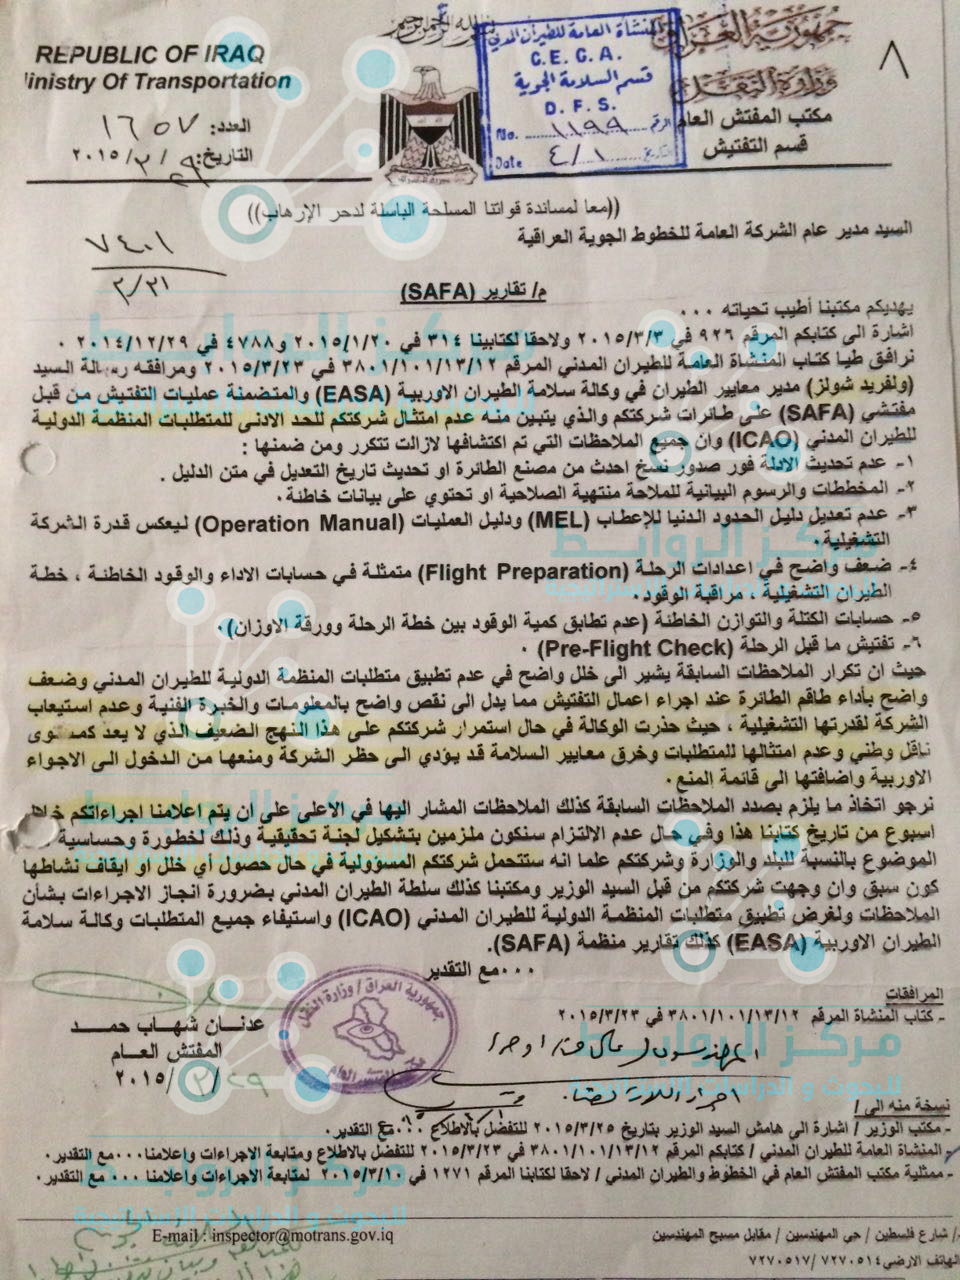 بسم الله الرحمن الرحيم
جمهورية العراق
وزارة النقل
مكتب المفتش العام
قسم التفتيش
٨
REPUBLIC OF IRAQ
Ministry Of Transportation
العدد: ١٦٥٧
التاريخ: ٢٩/٣/٢٠١٥
المنشأة العامة للطيران المدني
C.E.C.A.
قسم السلامة الجوية
D.F.S.
No. ١١٩٩ الرقم
Date ٤/١ تاريخ
((معا لمساندة قواتنا المسلحة الباسلة لدحر الإرهاب))
السيد مدير عام الشركة العامة للخطوط الجوية العراقية
٧٤٠١
٣/٣١
م/ تقارير (SAFA)
يهديكم مكتبنا أطيب تحياته ...
اشارة الى كتابكم المرقم ٩٢٦ في ٢٠١٥/٣/٣ ولاحقا لكتابينا ٣١٤ في ٢٠١٥/١/٢٠ و٤٧٨٨ في ٢٠١٤/١٢/٢٩ .
نرافق طيا كتاب المنشاة العامة للطيران المدني المرقم ٣٨٠١/١٠١/١٣/١٢ في ٢٠١٥/٣/٢٣ ومرافقه رسالة السيد
(ولفريد شولز) مدير معايير الطيران في وكالة سلامة الطيران الاوربية (EASA) والمتضمنة عمليات التفتيش من قبل
مفتشي (SAFA) على طائرات شركتكم والذي يتبين منه عدم امتثال شركتكم للحد الادنى للمتطلبات المنظمة الدولية
للطيران المدني (ICAO) وان جميع الملاحظات التي تم اكتشافها لازالت تتكرر ومن ضمنها :
١- عدم تحديث الادلة فور صدور نسخ احدث من مصنع الطائرة او تحديث تاريخ التعديل في متن الدليل .
٢- المخططات والرسوم البيانية للملاحة منتهية الصلاحية او تحتوي على بيانات خاطئة.
٣- عدم تعديل دليل الحدود الدنيا للإعطاب (MEL) ودليل العمليات (Operation Manual) ليعكس قدرة الشركة
التشغيلية.
٤- ضعف واضح في اعدادات الرحلة (Flight Preparation) متمثلة في حسابات الاداء والوقود الخاطئة ، خطة
الطيران التشغيلية ، مراقبة الوقود.
٥- حسابات الكتلة والتوازن الخاطئة (عدم تطابق كمية الوقود بين خطة الرحلة وورقة الاوزان).
٦- تفتيش ما قبل الرحلة (Pre-Flight Check) .
حيث ان تكرار الملاحظات السابقة يشير الى خلل واضح في عدم تطبيق متطلبات المنظمة الدولية للطيران المدني وضعف
واضح بأداء طاقم الطائرة عند اجراء اعمال التفتيش مما يدل الى نقص واضح بالمعلومات والخبرة الفنية وعدم استيعاب
الشركة لقدرتها التشغيلية ، حيث حذرت الوكالة في حال استمرار شركتكم على هذا النهج الضعيف الذي لا يعد كمستوى
ناقل وطني وعدم امتثالها للمتطلبات وخرق معايير السلامة قد يؤدي الى حظر الشركة ومنعها من الدخول الى الاجواء
الاوربية واضافتها الى قائمة المنع.
نرجو اتخاذ ما يلزم بصدد الملاحظات السابقة كذلك الملاحظات المشار اليها في الاعلى على ان يتم اعلامنا اجراءاتكم خلال
اسبوع من تاريخ كتابنا هذا وفي حال عدم الالتزام سنكون ملزمين بتشكيل لجنة تحقيقية وذلك لخطورة وحساسية
الموضوع بالنسبة للبلد والوزارة وشركتكم علما انه ستتحمل شركتكم المسؤولية في حال حصول أي خلل او ايقاف نشاطها
كون سبق وان وجهت شركتكم من قبل السيد الوزير ومكتبنا كذلك سلطة الطيران المدني بضرورة انجاز الاجراءات بشأن
الملاحظات ولغرض تطبيق متطلبات المنظمة الدولية للطيران المدني (ICAO) واستيفاء جميع المتطلبات وكالة سلامة
الطيران الاوربية (EASA) كذلك تقارير منظمة (SAFA).
...مع التقدير
عدنان شهاب حمد
المفتش العام
٢٠١٥/٣/٢٩
جمهورية العراق / وزارة النقل
المرافقات
- كتاب المنشاة المرقم ٣٨٠١/١٠١/١٣/١٢ في ٢٠١٥/٣/٢٣
نسخة منه الى /
- مكتب الوزير / اشارة الى هامش السيد الوزير بتاريخ ٢٠١٥/٣/٢٥ للتفضل بالاطلاع ...مع التقدير.
- المنشاة العامة للطيران المدني / كتابكم المرقم ٣٨٠١/١٠١/١٣/١٢ في ٢٠١٥/٣/٢٣ للتفضل بالاطلاع ومتابعة الاجراءات واعلامنا...مع التقدير.
- ممثلية مكتب المفتش العام في الخطوط والطيران المدني / لاحقا لكتابنا المرقم ١٢٧١ في ٢٠١٥/٣/١٠ لمتابعة الاجراءات واعلامنا ... مع التقدير.
/ شارع فلسطين / حي المهندسين / مقابل مسبح المهندسين
الهاتف الارضي ٧٢٧٠٥١٤ / ٧٢٧٠٥١٧
E-mail : inspector@motrans.gov.iq
مركز الروابط
للبحوث و الدراسات الاستراتيجية